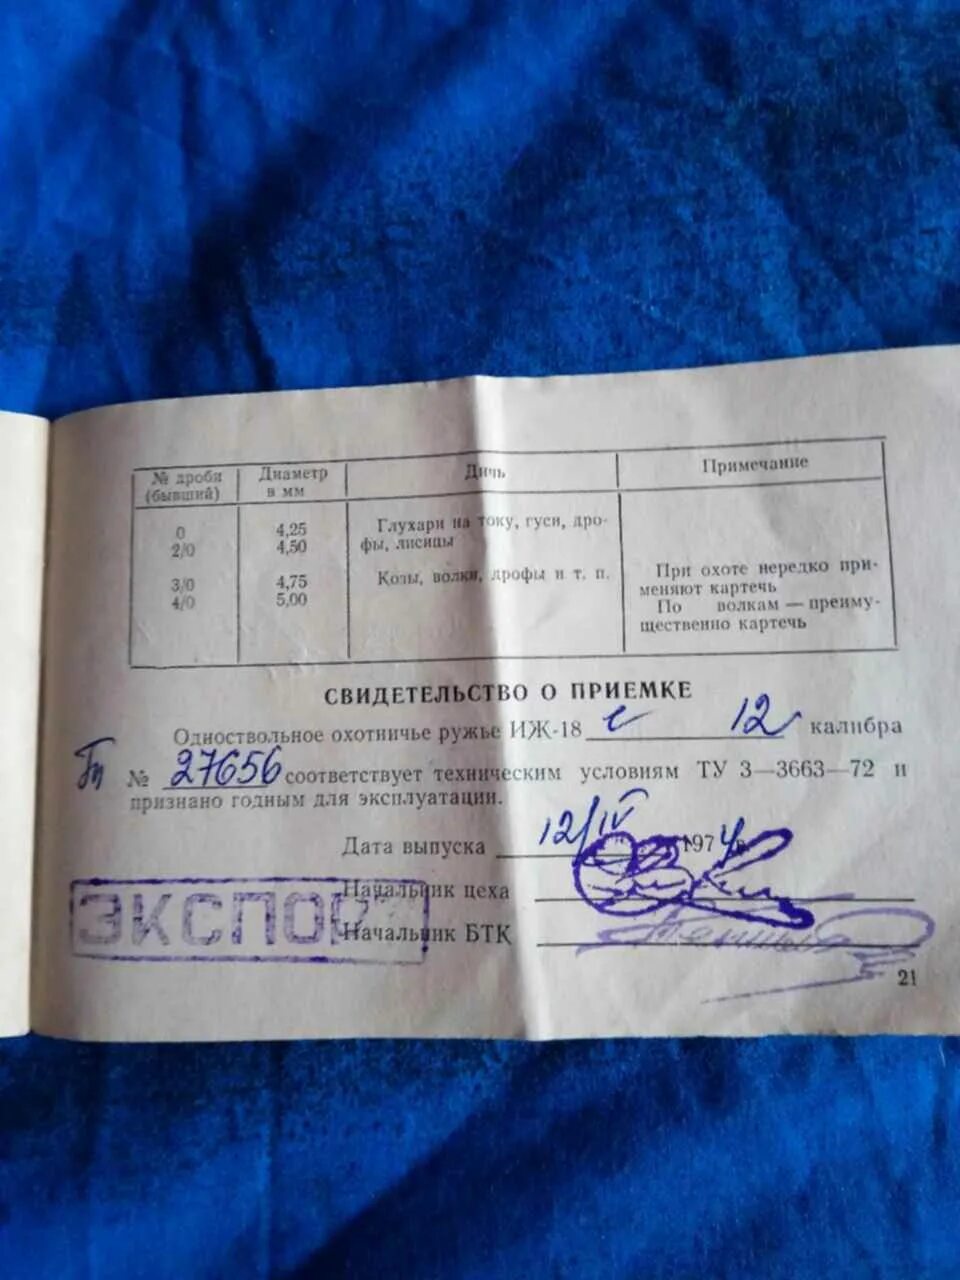 № дроби (бывший) Диаметр в мм Дичь Примечание
0 4,25 Глухари на току, гуси, дро-
2/0 4,50 фы, лисицы
3/0 4,75 Козы, волки, дрофы и т. п. При охоте нередко при-
4/0 5,00 меняют картечь
По волкам — преиму-
щественно картечь
СВИДЕТЕЛЬСТВО О ПРИЕМКЕ
Одноствольное охотничье ружье ИЖ-18 е 12 калибра
№ 27656 соответствует техническим условиям ТУ 3—3663—72 и
признано годным для эксплуатации.
Дата выпуска 12/IV 1974 г.
Начальник цеха
ЭКСПОР
Начальник БТК
21